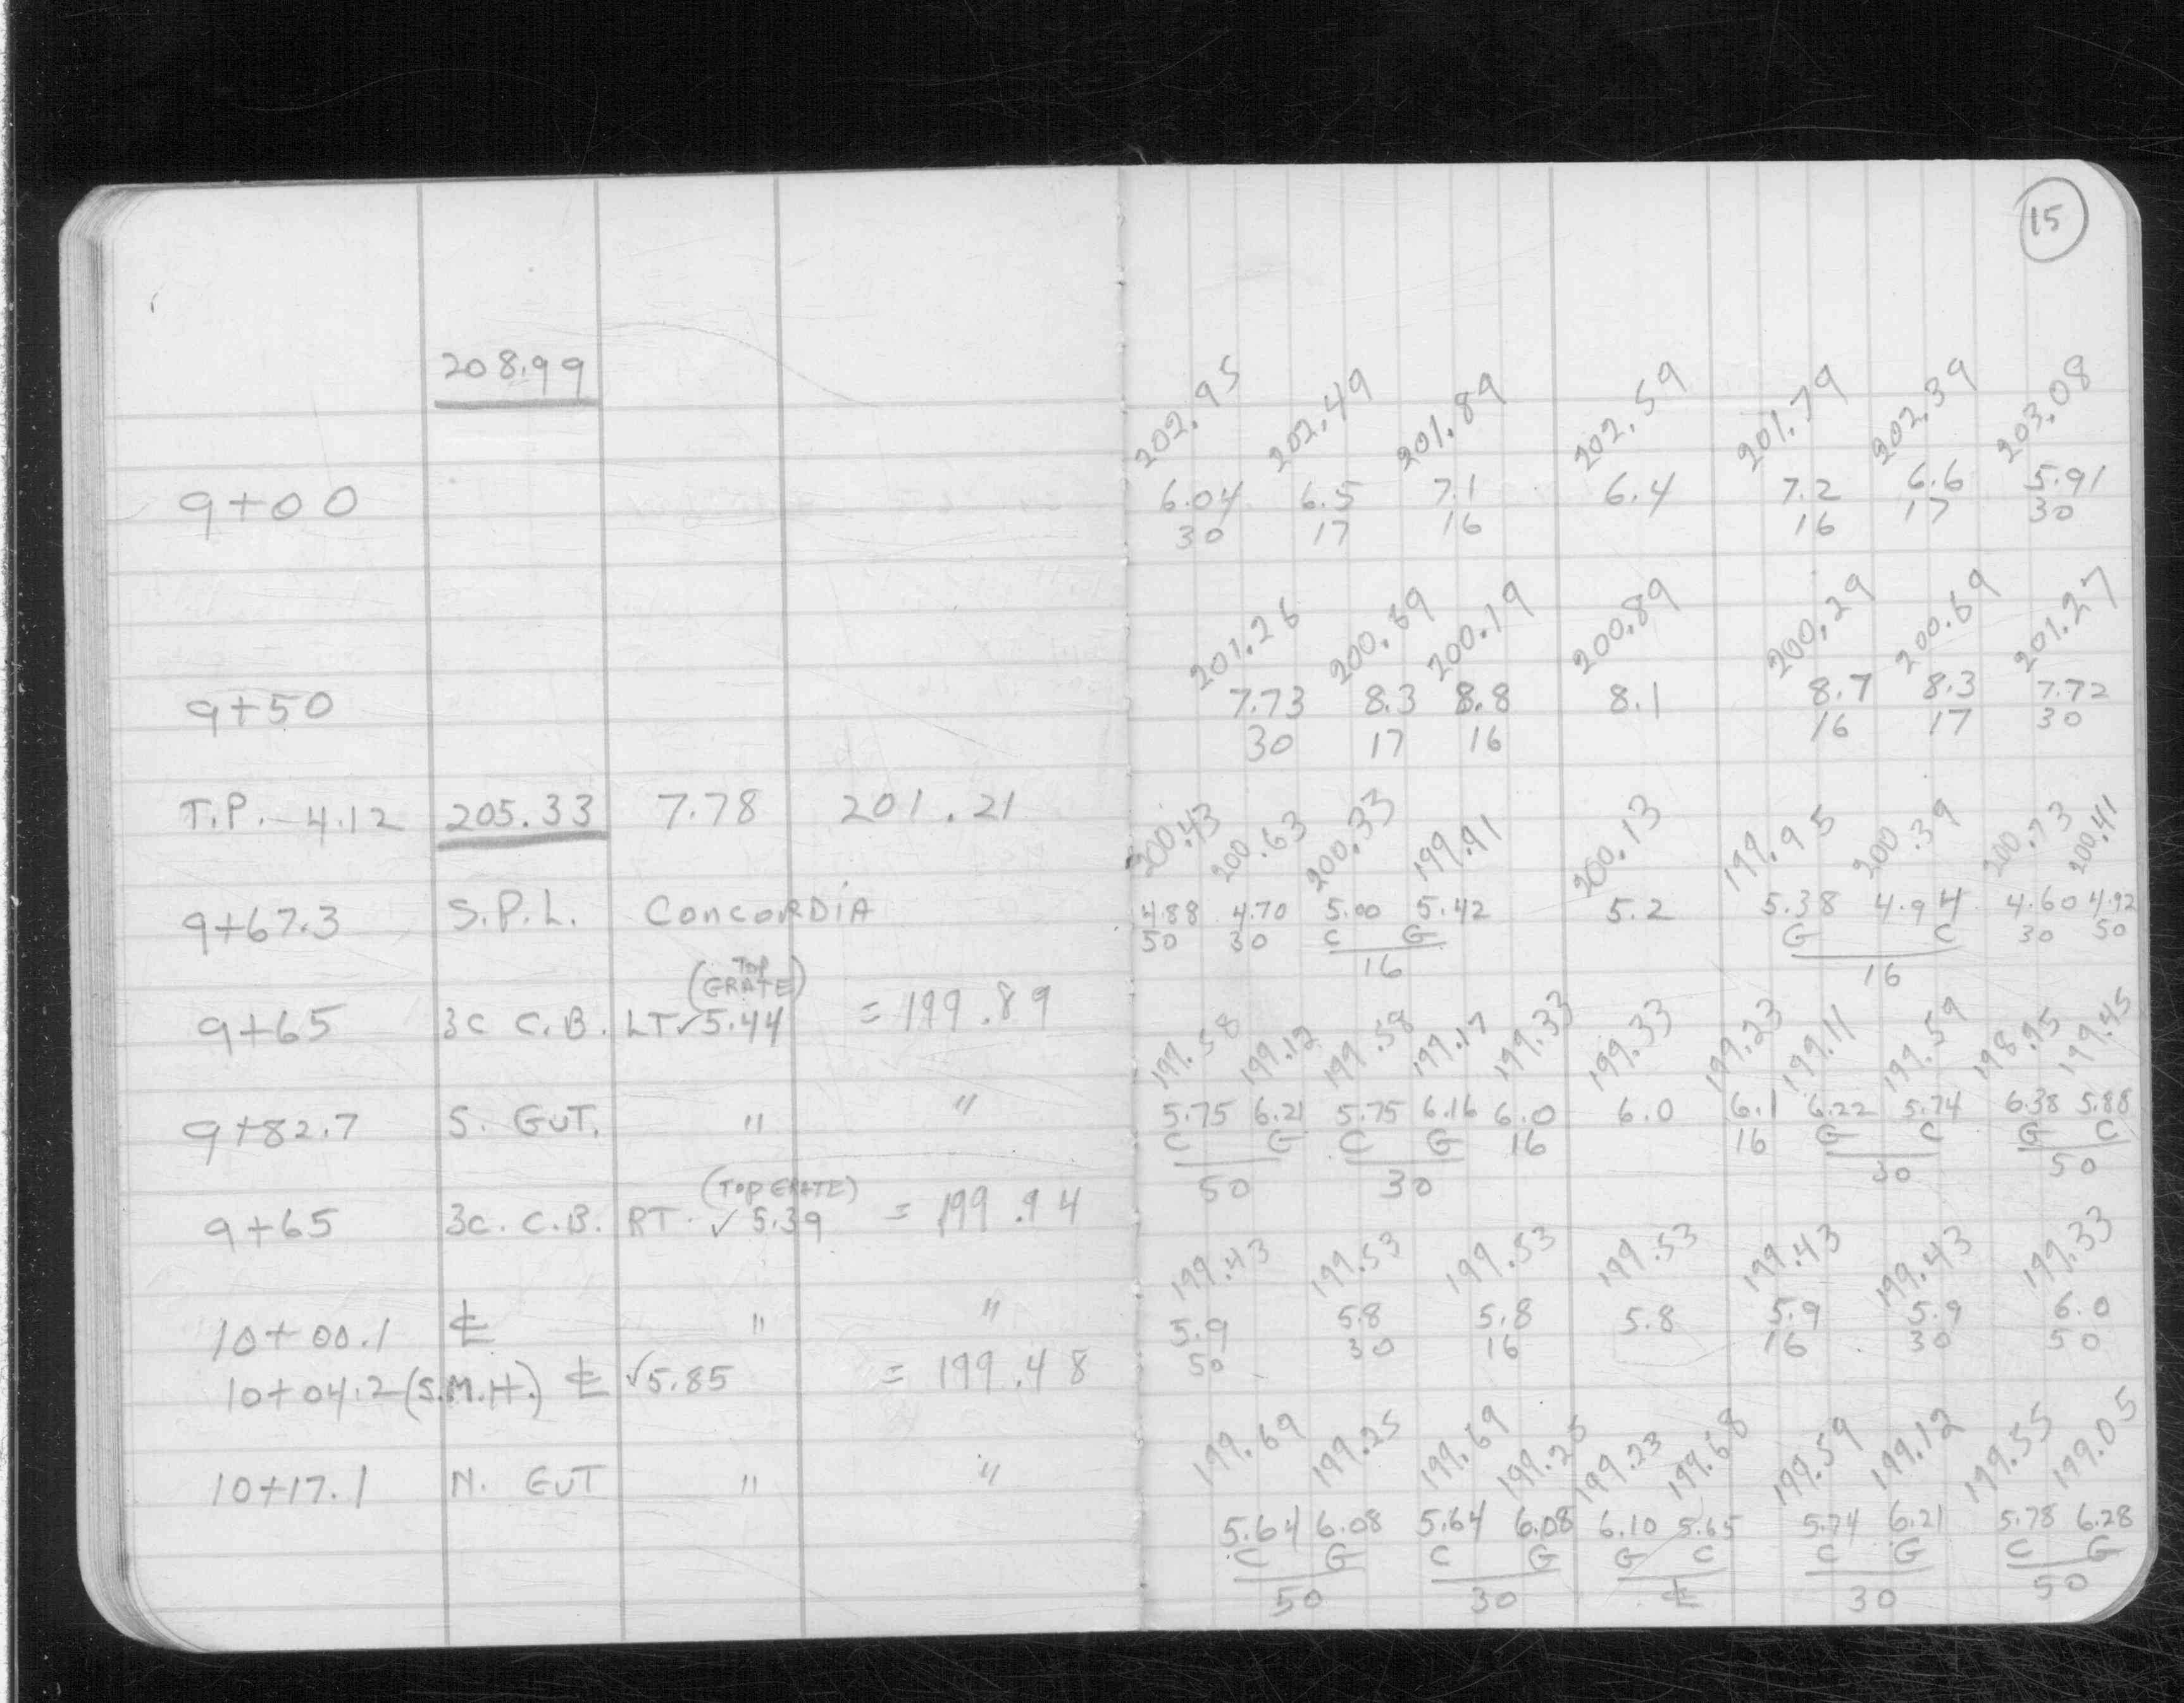 15
208.99
202.95 202.49 201.89 202.59 201.79 202.39 203.08
9+00 6.04 6.5 7.1 6.4 7.2 6.6 5.91
30 17 16 16 17 30
201.26 200.69 200.19 200.89 200.29 200.69 201.27
9+50 7.73 8.3 8.8 8.1 8.7 8.3 7.72
30 17 16 16 17 30
T.P. 4.12 205.33 7.78 201.21
200.43 200.63 200.33 199.91 200.13 199.95 200.39 200.73 200.41
9+67.3 S.P.L. CONCORDIA 4.88 4.70 5.00 5.42 5.2 5.38 4.94 4.60 4.92
50 30 C G G C 30 50
16 16
(TOP
GRATE)
9+65 3C C.B. LT ✓5.44 = 199.89
199.58 199.12 199.58 199.17 199.33 199.33 199.23 199.11 199.59 198.95 199.45
9+82.7 S. GUT. " " 5.75 6.21 5.75 6.16 6.0 6.0 6.1 6.22 5.74 6.38 5.88
C G C G 16 16 G C G C
50 30 30 50
(TOP GRATE)
9+65 3C. C.B. RT. ✓ 5.39 = 199.94
199.43 199.53 199.53 199.53 199.43 199.43 199.33
10+00.1 ℄ " " 5.9 5.8 5.8 5.8 5.9 5.9 6.0
50 30 16 16 30 50
10+04.2 (S.M.H.) ℄ ✓5.85 = 199.48
199.69 199.25 199.69 199.25 199.23 199.68 199.59 199.12 199.55 199.05
10+17.1 N. GUT " "
5.64 6.08 5.64 6.08 6.10 5.65 5.74 6.21 5.78 6.28
C G C G G C C G C G
50 30 ℄ 30 50